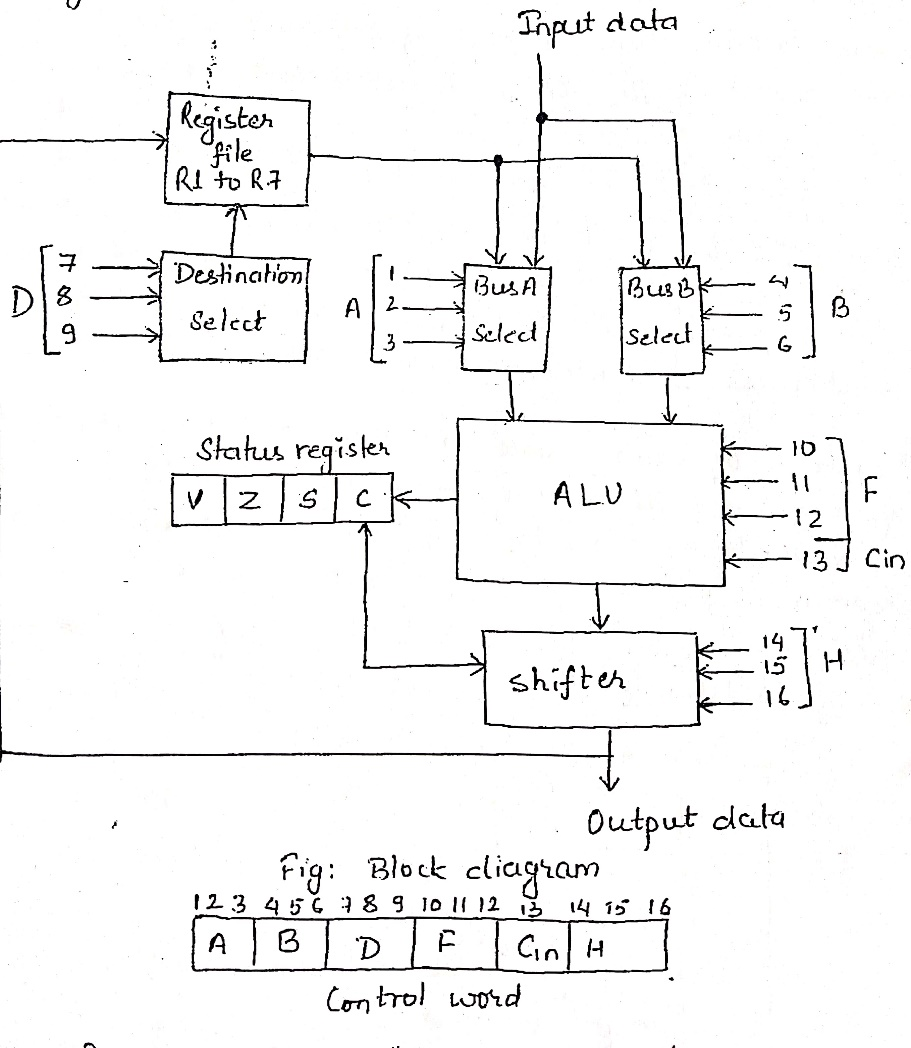 Input data
Register
file
R1 to R7
D
7
8
9
Destination
Select
A
1
2
3
Bus A
Select
Bus B
Select
4
5
6
B
Status register
V Z S C
ALU
10
11
12
13
F
Cin
Shifter
14
15
16
H
Output data
Fig: Block diagram
1 2 3 4 5 6 7 8 9 10 11 12 13 14 15 16
A B D F Cin H
Control word